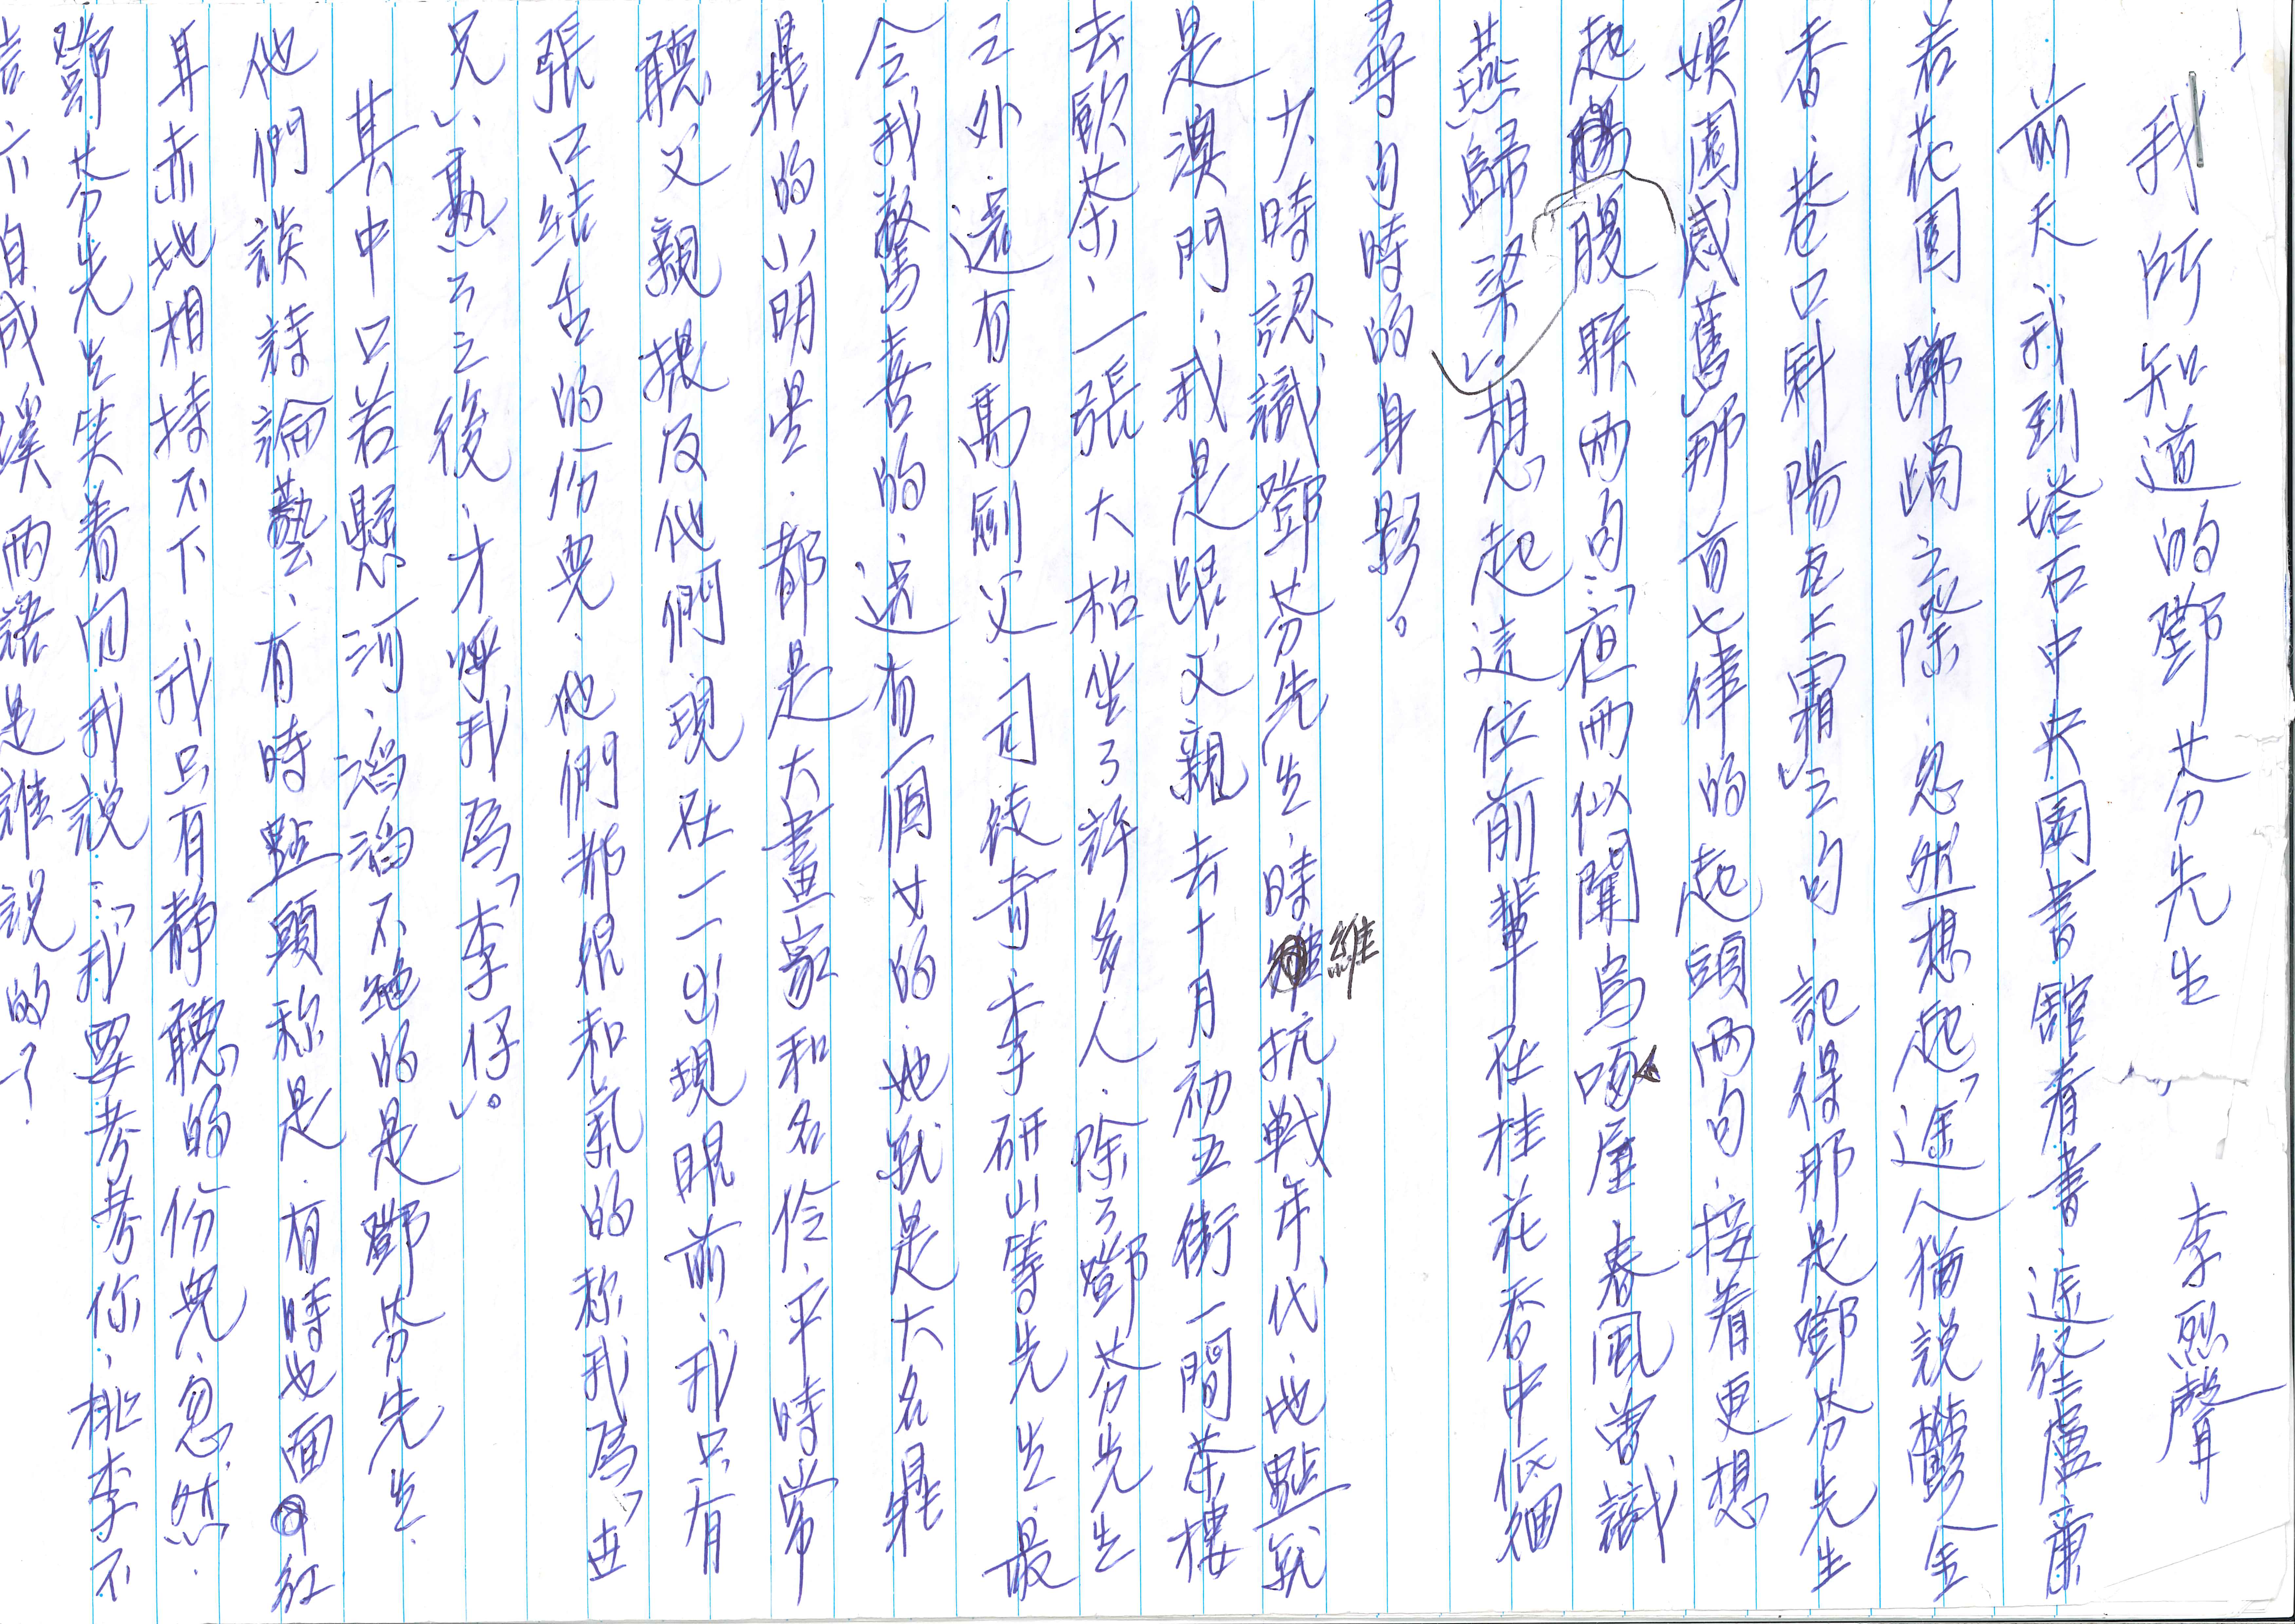 我所知道的鄧芬先生 李烈聲
前天,我到塔石中央圖書館看書,途經盧廉
若花園,躑躅之際,忽然想起「途人猶說鬱金
香,巷口斜陽瓦上霜」之句,記得那是鄧芬先生
娛園感舊那首七律的起頭兩句,接着更想
起腹聯兩句:「夜雨似聞烏啄屋,春風曾識
燕歸梁」。想起這位前輩在桂花香中低徊
尋句時的身影。
少時認識鄧芬先生,時維抗戰年代,地點就
是澳門,我是跟父親去十月初五街一間茶樓
去飲茶,一張大枱坐了許多人,除了鄧芬先生
之外,還有馮劍父、司徒奇、李研山等先生,最
令我驚喜的,還有一個女的,她就是大名鼎
鼎的小明星,都是大畫家和名伶,平時常
聽父親提及他們,現在一一出現眼前,我只有
張口結舌的份兒,他們都很和氣的称我爲「世
兄」,熟了之後,才呼我爲「李仔」。
其中口若懸河、滔滔不絕的是鄧芬先生,
他們談詩論藝,有時點頭称是,有時也面紅
耳赤地相持不下,我只有静聽的份兒,忽然,
鄧芬先生笑着向我說:「我要考考你,桃李不
言下自成蹊兩語是誰說的?